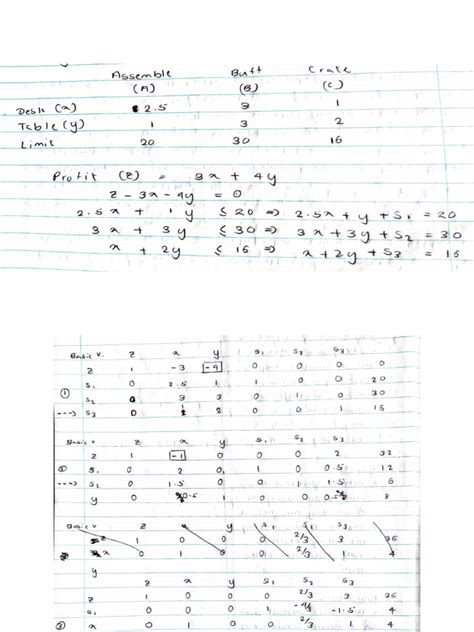 Assemble Buff Crate
(A) (B) (C)
Desk (x) 2.5 3 1
Table (y) 1 3 2
Limit 20 30 16
Profit (z) = 3x + 4y
z - 3x - 4y = 0
2.5x + 1y ≤ 20 => 2.5x + y + S1 = 20
3x + 3y ≤ 30 => 3x + 3y + S2 = 30
x + 2y ≤ 16 => x + 2y + S3 = 16
Basic V. z x y S1 S2 S3
z 1 -3 -4 0 0 0 0
S1 0 2.5 1 1 0 0 20
① S2 0 3 3 0 1 0 30
---> S3 0 2 0 0 1 16
Basic v z x y S1 S2 S3
z 1 -1 0 0 0 2 32
② S1 0 2 0 1 0 0.5 12
---> S2 0 1.5 0 0 1 1.5 6
y 0 0.5 1 0 0 8
Basic v z x y S1 S2 S3
z 1 0 0 0 2/3 3 36
x 0 1 0 0 2/3 1 4
y
z x y S1 S2 S3
z 1 0 0 0 2/3 3 36
S1 0 0 0 1 -1.5 4
③ x 0 1 0 0 2/3 1 4